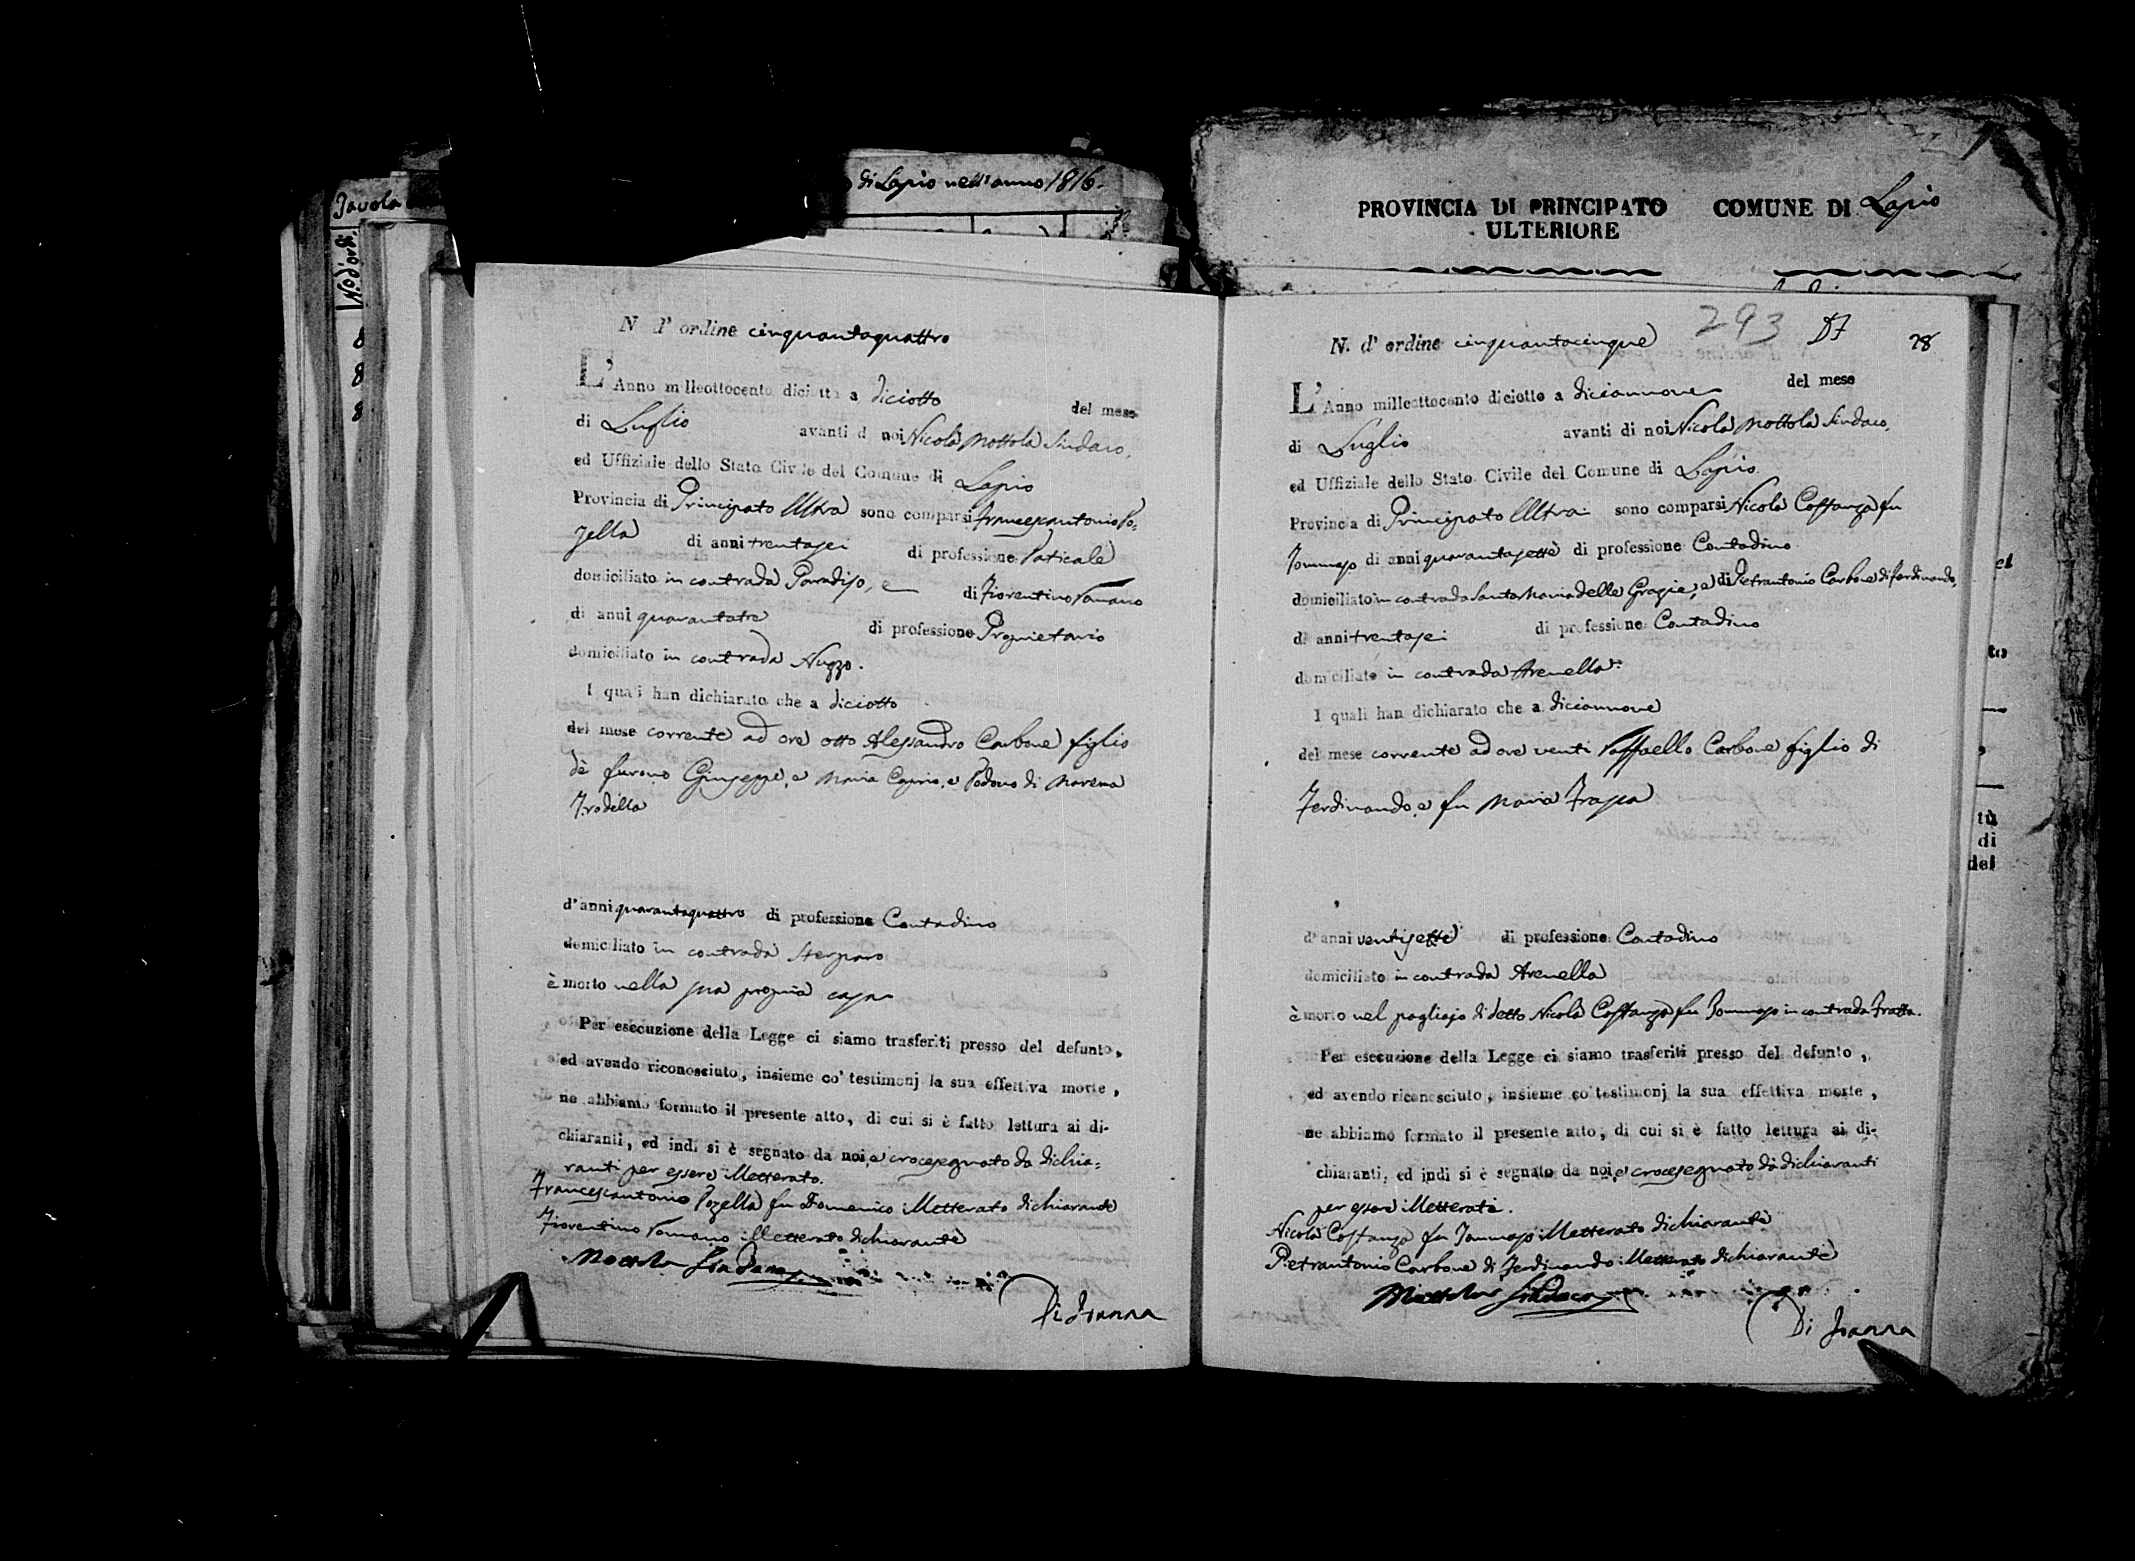 Tavola
di Lapio nell'anno 1816.
N. d'ord.
8
8
8
N d' ordine cinquantaquattro
L'Anno milleottocento diciotto a diciotto del mese
di Luglio avanti di noi Nicola Mottola Sindaco,
ed Uffiziale dello Stato Civile del Comune di Lapio
Provincia di Principato Ultra sono comparsi Francescantonio Po=
zella di anni trentasei di professione Vaticale
domiciliato in contrada Paradiso, e di Fiorentino Romano
di anni quarantatre di professione Proprietario
domiciliato in contrada Nuzzo.
I quali han dichiarato che a diciotto
del mese corrente ad ore otto Alessandro Carbone figlio
dè furono Giuseppe, e Maria Caprio, e Vedovo di Morena
Trodella
d'anni quarantaquattro di professione Contadino
domiciliato in contrada Sterparo
è morto nella sua propria casa
Per esecuzione della Legge ci siamo trasferiti presso del defunto,
ed avendo riconosciuto, insieme co' testimonj la sua effettiva morte,
ne abbiamo formato il presente atto, di cui si è fatto lettura ai di-
chiaranti, ed indi si è segnato da noi, e crocesegnato da dichia=
ranti per essere illetterato.
Francescantonio Pozella fu Domenico illetterato dichiarante
Fiorentino Romano illetterato dichiarante
Mottola Sindaco
Di Joanna
PROVINCIA DI PRINCIPATO COMUNE DI Lapio
ULTERIORE
293 78
N. d' ordine cinquantacinque
L'Anno milleottocento diciotto a diciannove del mese
di Luglio avanti di noi Nicola Mottola Sindaco,
ed Uffiziale dello Stato Civile del Comune di Lapio
Provincia di Principato Ultra sono comparsi Nicola Costanza fu
Tommaso di anni quarantasette di professione Contadino
domiciliato in contrada Santa Maria delle Grazie, e di Pietrantonio Carbone di Ferdinando,
di anni trentasei di professione Contadino
domiciliato in contrada Arenella
I quali han dichiarato che a diciannove
del mese corrente ad ore venti Raffaello Carbone figlio di
Ferdinando, e fu Maria Trasca
d'anni ventisette di professione Contadino
domiciliato in contrada Arenella
è morto nel pagliajo di detto Nicola Costanza fu Tommaso in contrada Fratta.
Per esecuzione della Legge ci siamo trasferiti presso del defunto,
ed avendo riconosciuto, insieme co' testimonj la sua effettiva morte,
ne abbiamo formato il presente atto, di cui si è fatto lettura ai di-
chiaranti, ed indi si è segnato da noi, e crocesegnato da dichiaranti
per essere illetterati.
Nicola Costanza fu Tommaso illetterato dichiarante
Pietrantonio Carbone di Ferdinando illetterato dichiarante
Mottola Sindaco
Di Joanna
el
to
tù
di
del